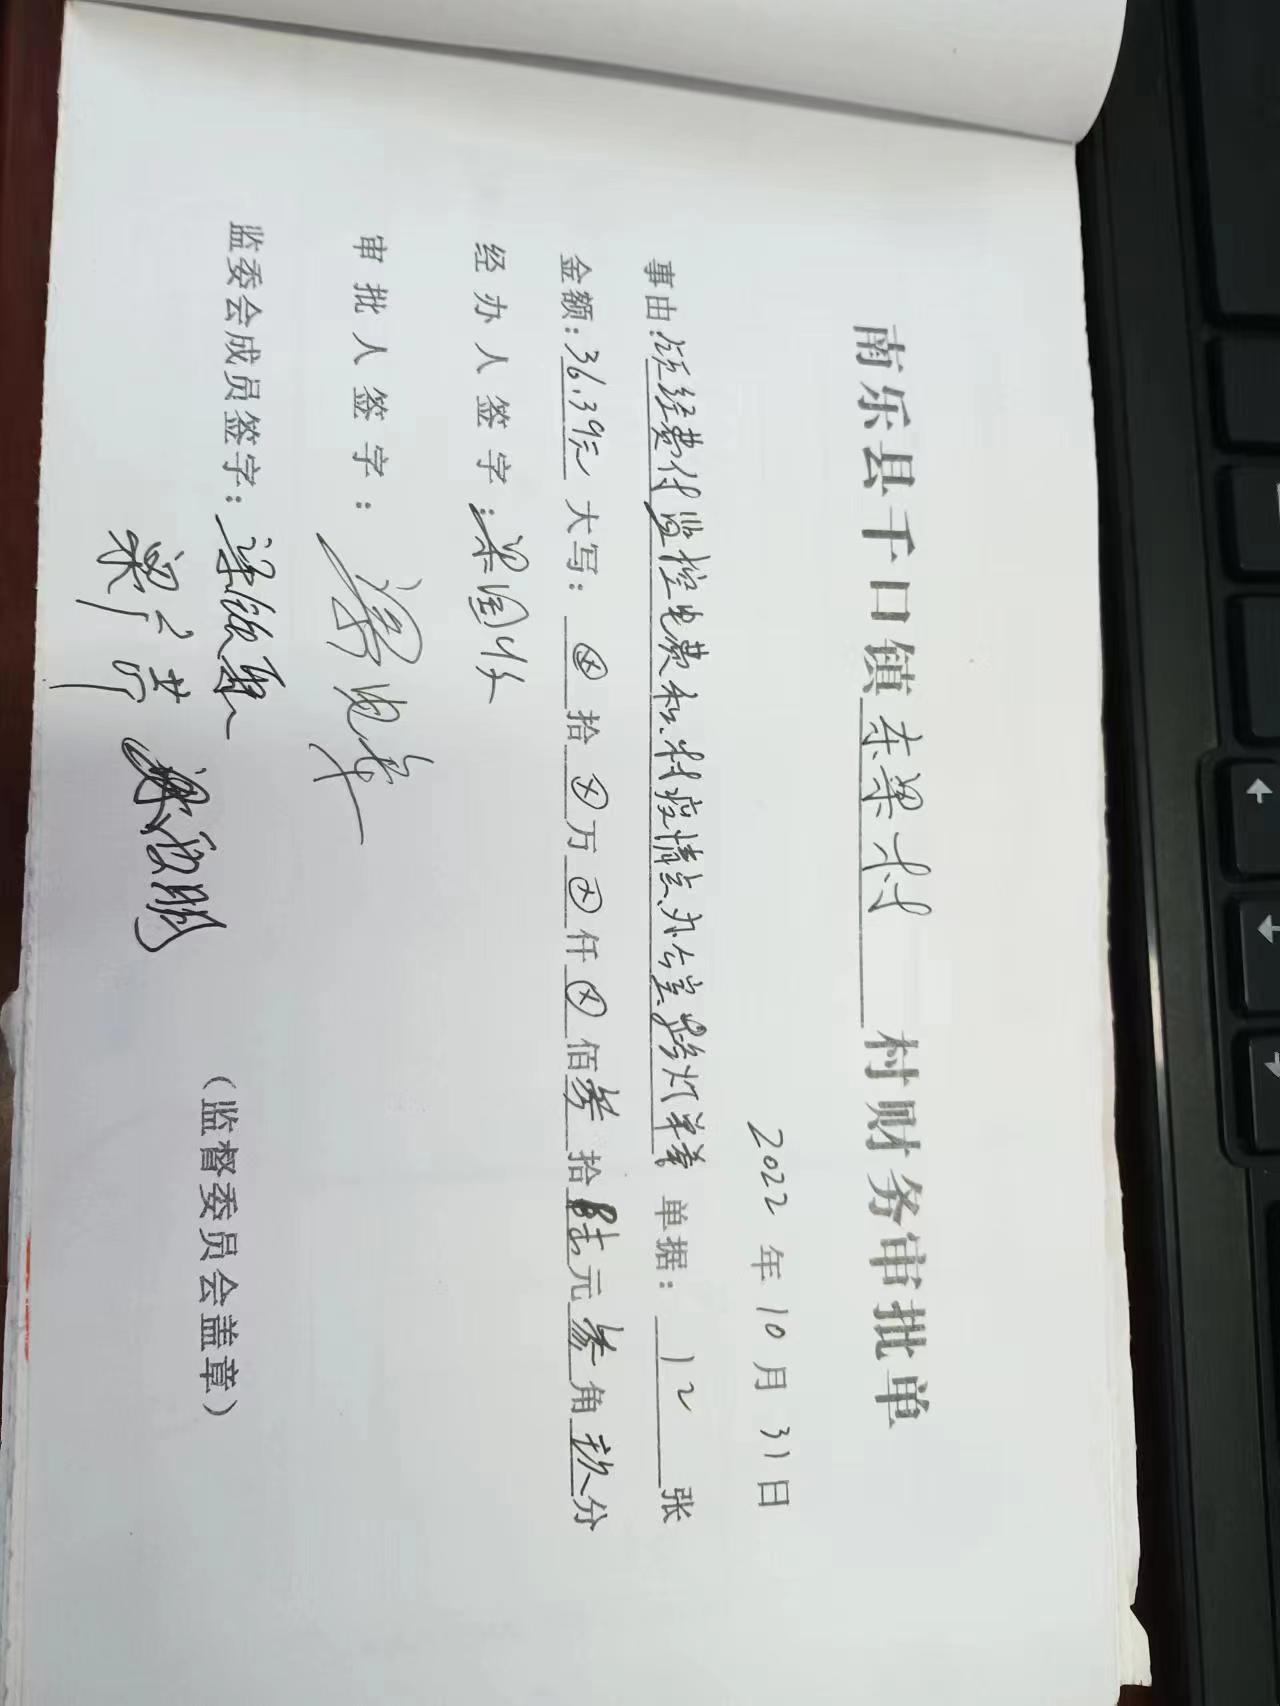 南乐县千口镇东梁村村财务审批单
2022年10月31日
事由:经费付监控电费和村疫情点办公室路灯等 单据:12张
金额:36.39元 大写:⊗拾⊗万⊗仟⊗佰叁拾陆元叁角玖分
经办人签字:梁
审批人签字:梁
监委会成员签字:梁
梁
(监督委员会盖章)